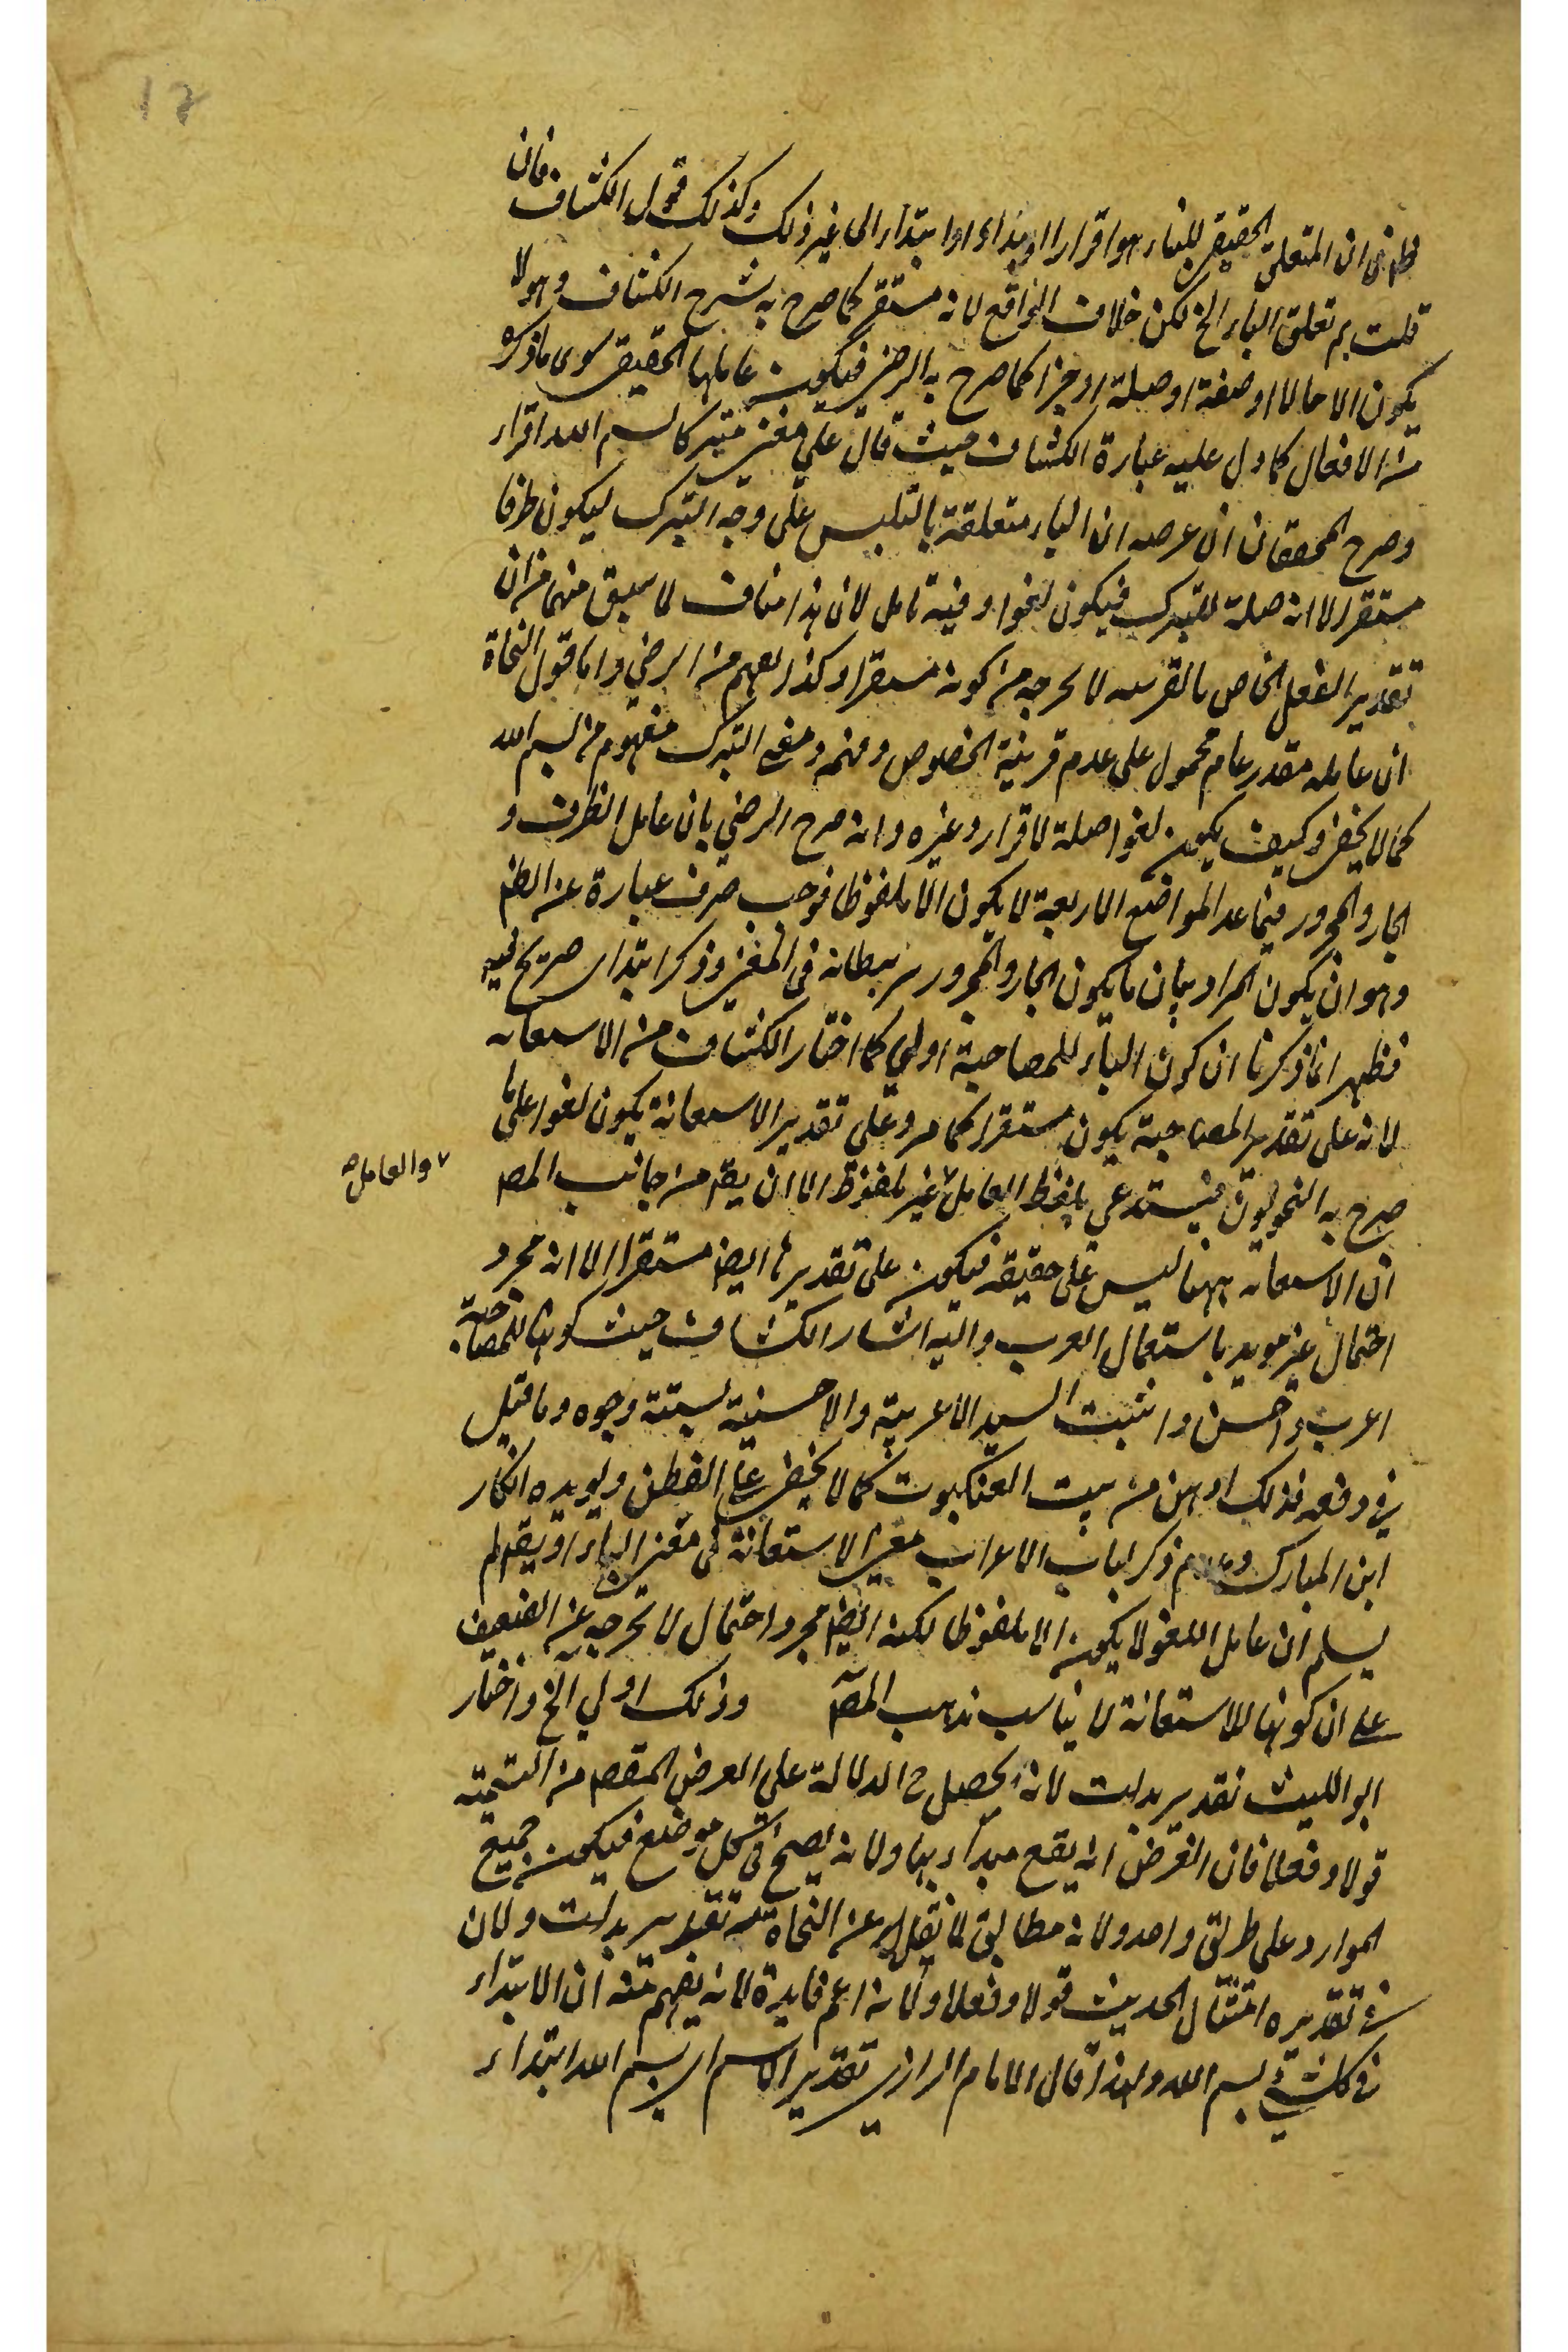 ١٢
ظهر في ان المتعلق الحقيقي للباء هو اقرار او بداء او ابتداء الى غير ذلك وكذلك قول الكشاف فان
قلت بم تعلق الباء الخ لكن خلاف الواقع لانه مستقر كما صرح به شرح الكشاف وهو لا
يكون الا حالا او صفة او صلة او خبرا كما صرح به الرضي فيكون عاملها الحقيقي سوى ما ذكره
من الافعال كما دل عليه عبارة الكشاف حيث قال على معنى متبركا بسم الله اقرار
وصرح المحققان ان غرضه ان الباء متعلقة بالتلبس على وجه التبرك ليكون ظرفا
مستقرا لا انه صلة للتبرك فيكون لغوا وفيه تامل لان هذا مناف لما سبق منهما من ان
تقدير الفعل الخاص بالقرينه لا يخرجه من كونه مستقرا وكذا يفهم من الرضي واما قول النحاة
ان عامله مقدر عام محمول على عدم قرينة الخصوص ومعنى التبرك مفهوم من بسم الله
كما لا يخفى وكيف يكون لغوا صلة لاقرار وغيره وانه صرح الرضي بان عامل الظرف و
الجار والمجرور فيما عدا المواضع الاربعة لا يكون الا ملفوظا فوجب صرف عبارة عن الظم
وهو ان يكون المراد بيان ما يكون الجار والمجرور مرتبطا به في المعنى وذكر ابتداى صريح فيه
فظهر مما ذكرنا ان كون الباء للمصاحبة اولى كما اختار الكشاف من الاستعانه
لانه على تقدير المصاحبة يكون مستقرا كما مر وعلى تقدير الاستعانة يكون لغوا على ما
صرح به النحويون فيستدعي تلفظ العامل غير ملفوظ الا ان يقم من جانب المصم
٧ والعامل صح
ان الاستعانه ههنا ليس على حقيقه فيكون على تقديرها ايضا مستقرا الا انه مجرد
احتمال غير مويد باستعمال العرب واليه اشار الكشاف حيث كونها للمصاحبة
اعرب واحسن واثبت السيد الاعربية والاحسنية بستة وجوه وما قيل
في دفعه فذلك اوهن من بيت العنكبوت كما لا يخفى على الفطن ويويده انكار
ابن المبارك وعدم ذكر لباب الاعراب معنى الاستعانة في معنى الباء او يقم لم
يسلم ان عامل اللغو لا يكون الا ملفوظا لكنه ايضا مجرد احتمال لا يخرجه عن الضعيف
على ان كونها للاستعانة لا يناسب مذهب المصم وذلك اولى الخ واختار
ابو الليث تقدير بدات لانه يحصل ح الدلالة على الغرض المقصم من التسمية
قولا وفعلا فان الغرض انه يقع مبدأ بها ولانه يصح في كل موضع فيكون جميع
الموارد على طريق واحد ولانه مطابق لما نقل عن النحاة تقدير بدات ولان
في تقديره امتثال الحديث قولا وفعلا ولانه اعم فايدة لانه يفهم منه ان الابتداء
في كل شئ بسم الله ولهذا قال الامام الرازي تقدير الاسم اي بسم الله ابتداء